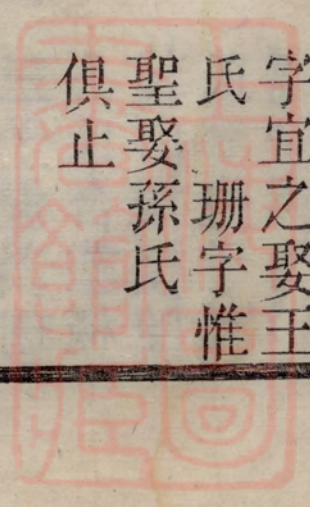 字宜之娶王
氏　珊字惟
聖娶孫氏
俱止